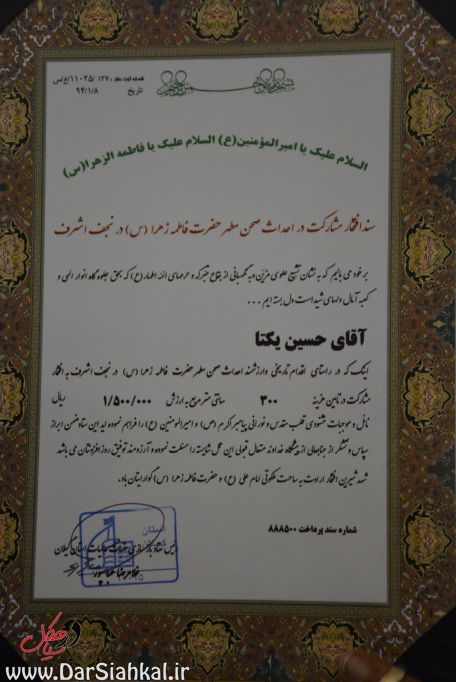 شماره ثبت ستاد ۱۳۷۰/۱۱۰۲۵/ع/س
تاریخ ۹۴/۱/۸
السلام علیک یا امیرالمؤمنین(ع) السلام علیک یا فاطمه الزهرا(س)
سند افتخار مشارکت در احداث صحن مطهر حضرت فاطمه زهرا (س) در نجف اشرف
بر خود می بالیم که به نشان تشیع علوی مزین و به نگهبانی از بقاع متبرکه و حرمهای ائمه اطهار(ع) که بحق جلوه گاه انوار الهی و
کعبه آمال دلهای شیداست دل بسته ایم ...
آقای حسین یکتا
اینک که در راستای اقدام تاریخی وارزشمند احداث صحن مطهر حضرت فاطمه زهرا (س) در نجف اشرف به افتخار
مشارکت در تامین هزینه ۳۰۰ سانتی متر مربع به ارزش ۱/۵۰۰/۰۰۰ ریال
نائل و موجبات خشنودی قلب مقدس و نورانی پیامبر اکرم (ص) و امیرالمومنین (ع) را فراهم نموده اید این ستاد ضمن ابراز
سپاس و تشکر از جنابعالی از پیشگاه خداوند متعال قبولی این عمل شایسته را مسئلت نموده و آرزومند توفیق روز افزونتان می باشد
شهد شیرین افتخار ارادت به ساحت ملکوتی امام علی (ع) و حضرت فاطمه زهرا (س) گوارایتان باد.
شماره سند پرداخت ۸۸۸۵۰۰
استان
رئیس ستاد بازسازی عتبات عالیات استان گیلان
سیاهکل
www.DarSiahkal.ir